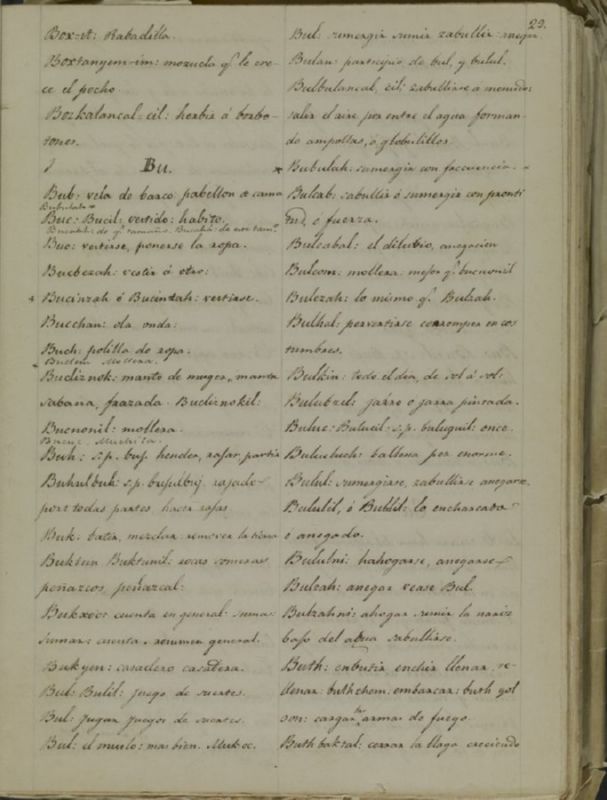 29.
Box-it: Rabadilla.
Boxtanyem-im: mozuela q.e le cre-
ce el pecho
Bozkalancal=cil: herbir á borbo-
tones.
Bu.
Bub: vela de barco, pabellon de cama
Buc: Bucil: vestido: habito.
Buc: vestirse, ponerse la ropa.
Bucbezah: vestir á otro:
Bucinzah ó Bucintah: vestirse.
Bucchan: ola onda:
Buch: polilla de ropa.
Mollera.
Bucliznok: manto de muger, manta
sabana, frazada. Bucliznokil:
Bucnonil: mollera.
Buh: s.p. buh. hender, rajar, partir
Buhulbuh: s.p. rajado
por todas partes, hacer rajas
Buk: batir, mezclar, remover la tierra
Buktun Buktunil: rocas someras,
peñazcos, peñazcal:
Bukxoc: cuenta en general: suma:
sumar: cuenta. resumen general.
Bukyom: casadero casadera.
Bul: Bulil: juego de suertes.
Bul: jugar juegos de suertes.
Bul: el muslo: mas bien. Mukoc.
Bul: sumergir sumir zabullir: anegar
Bulan: participio de bul, y bulul.
Bulbulancal, cil: zabullirse á menudo:
salir el aire por entre el agua forman-
do ampollas, ó globulillos
Bubulah: sumergir con frecuencia.
Bulcab: sabullir ó sumergir con pronti
tud, ó fuerza.
Bulcabal: el dilubio, anegacion
Bulcom: mollera. mejor q.e bucnonil
Bulezah: lo mismo q.e Bulzah.
Bulhal: pervertirse corromper en cos
tumbres.
Bulkin: todo el dia, de sol á sol:
Bulubzul: jarro o jarra pintada.
Buluc: Bulucil: s.p. buluguil: once.
Bululuch: ballena pez enorme.
Bulul: sumergirse, zabullirse anegarse.
Bululil, ó Bublil: lo encharcado
ó anegado.
Bululni: hahogarse, anegarse
Bulzah: anegar vease Bul.
Bulzahni: ahogar sumir la nariz
bajo del agua sabullirse.
Buth: enbutir enchir llenar, re-
llenar: buthchem: embarcar: buth yol
son: cargar armas de fuego.
Buth baktal: cerrar la llaga creciendo